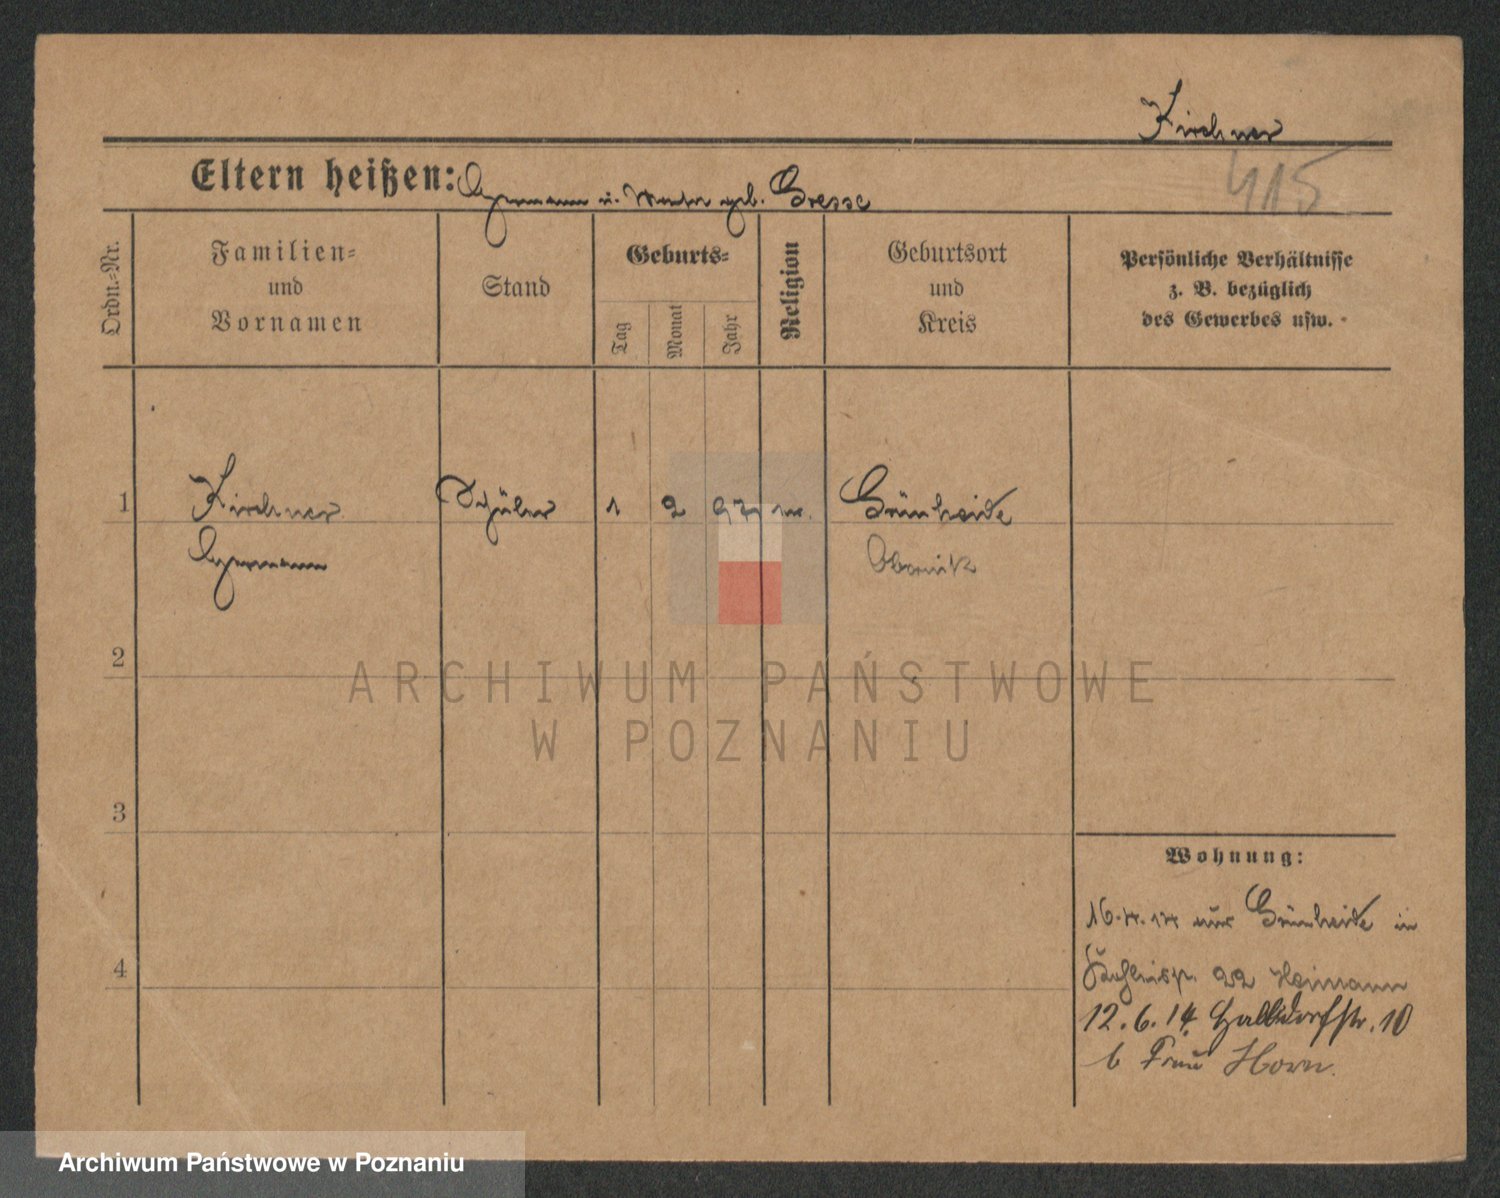 Kirchner
415
Eltern heißen: Hermann u. geb. Gresse
Ordn.=Nr.
Familien=
und
Vornamen
Stand
Geburts=
Tag
Monat
Jahr
Religion
Geburtsort
und
Kreis
Persönliche Verhältnisse
z. B. bezüglich
des Gewerbes usw.
1 Kirchner Schüler 1 2 97 Grünheide
Hermann Obornik
2
3
4
Wohnung:
16.4.14 aus Grünheide in
22 Heimann
12.6.14 Halldorfstr. 10
b Frau Horn.
ARCHIWUM PAŃSTWOWE
W POZNANIU
Archiwum Państwowe w Poznaniu